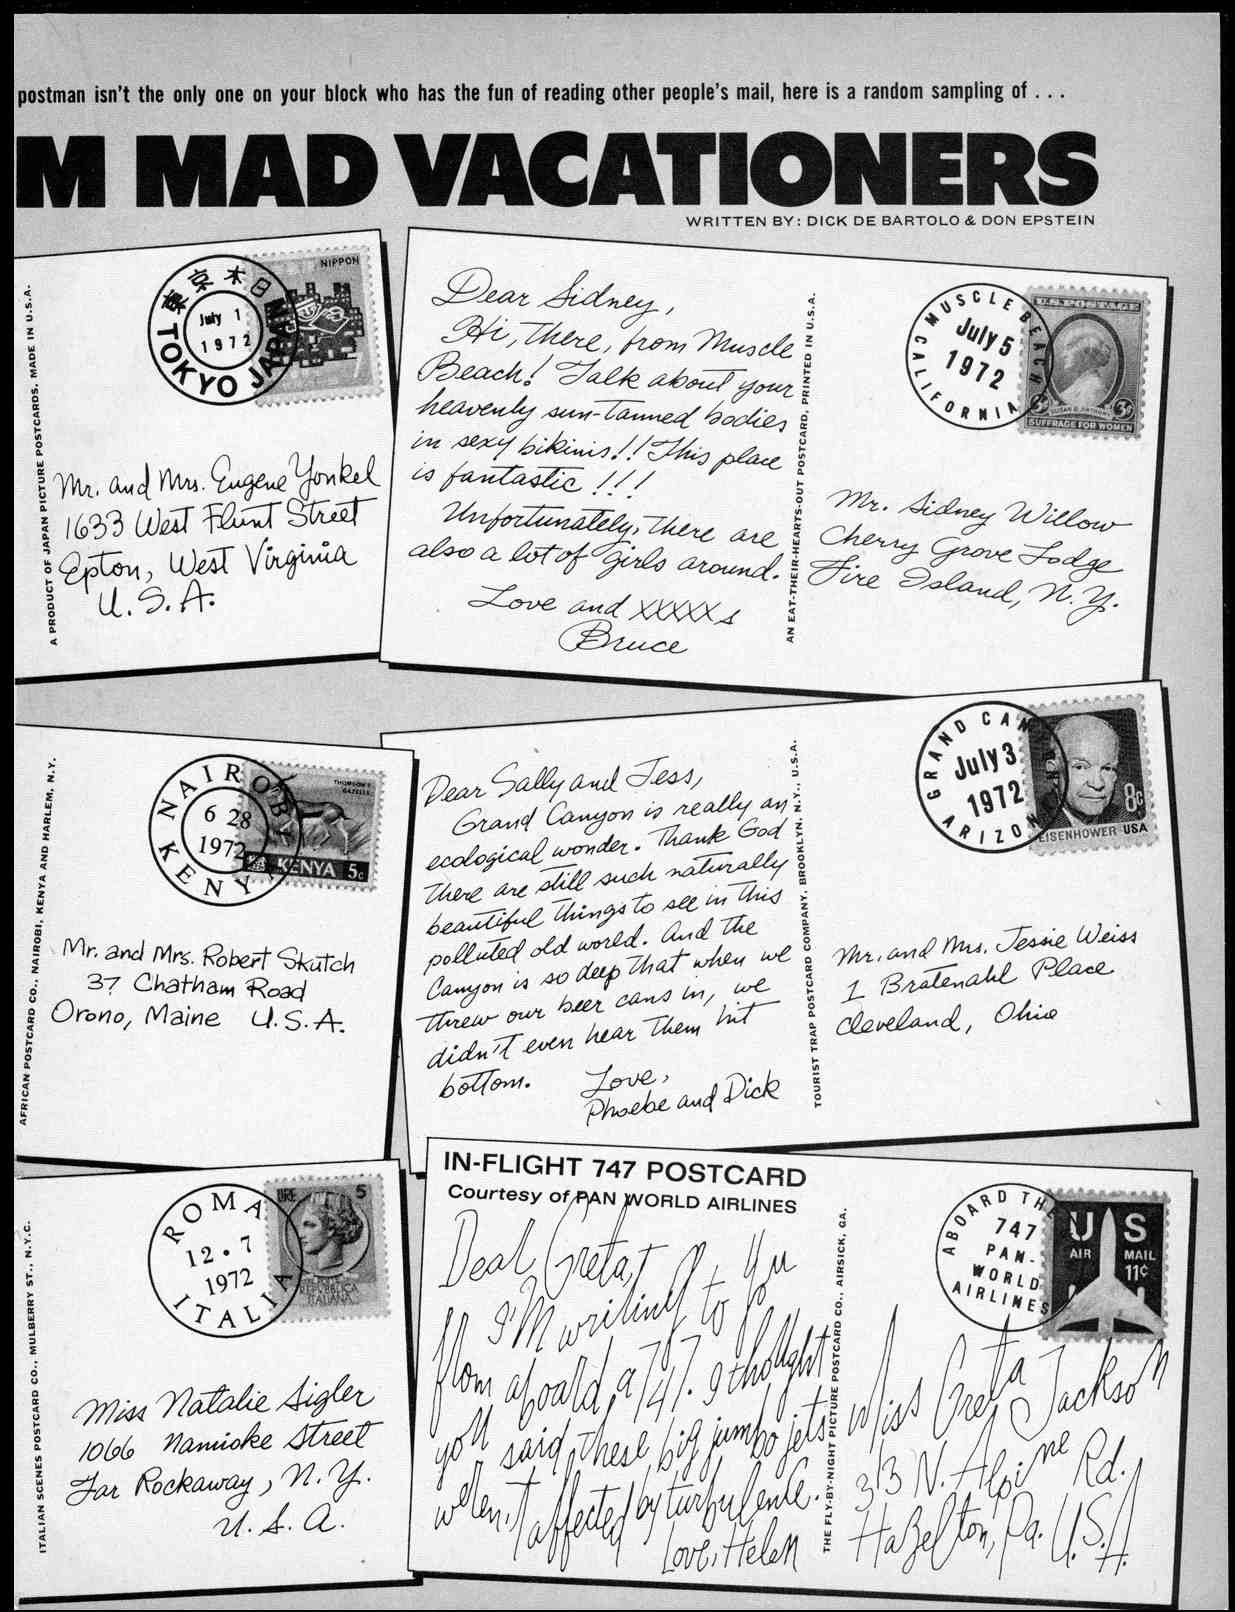 postman isn't the only one on your block who has the fun of reading other people's mail, here is a random sampling of . . .
M MAD VACATIONERS
WRITTEN BY: DICK DE BARTOLO & DON EPSTEIN
A PRODUCT OF JAPAN PICTURE POSTCARDS, MADE IN U.S.A.
東京本日
July 1
1972
TOKYO JAPAN
NIPPON
Mr. and Mrs. Eugene Yonkel
1633 West Flunt Street
Epton, West Virginia
U.S.A.
Dear Sidney,
Hi, There, from Muscle
Beach! Talk about your
heavenly sun-tanned bodies
in sexy bikinis!! This place
is fantastic!!!
Unfortunately, there are
also a lot of girls around.
Love and XXXXXs
Bruce
AN EAT-THEIR-HEARTS-OUT POSTCARD, PRINTED IN U.S.A.
MUSCLE BEACH
July 5
1972
CALIFORNIA
U.S. POSTAGE
3¢ SUSAN B. ANTHONY 3¢
SUFFRAGE FOR WOMEN
Mr. Sidney Willow
Cherry Grove Lodge
Fire Island, N.Y.
AFRICAN POSTCARD CO., NAIROBI, KENYA AND HARLEM, N.Y.
NAIROBI
6 28
1972
KENYA
THOMSON'S
GAZELLE
KENYA 5c
Mr. and Mrs. Robert Skutch
37 Chatham Road
Orono, Maine U.S.A.
Dear Sally and Jess,
Grand Canyon is really an
ecological wonder. Thank God
there are still such naturally
beautiful things to see in this
polluted old world. And the
Canyon is so deep that when we
threw our beer cans in, we
didn't even hear them hit
bottom.
Love,
Phoebe and Dick
TOURIST TRAP POSTCARD COMPANY, BROOKLYN, N.Y., U.S.A.
GRAND CANYON
July 3
1972
ARIZONA
8¢
EISENHOWER USA
Mr. and Mrs. Jessie Weiss
1 Bratenahl Place
Cleveland, Ohio
ITALIAN SCENES POSTCARD CO., MULBERRY ST., N.Y.C.
ROMA
12 • 7
1972
ITALIA
LIRE 5
REPUBBLICA
ITALIANA
Miss Natalie Sigler
1066 Namioke Street
Far Rockaway, N.Y.
U.S.A.
IN-FLIGHT 747 POSTCARD
Courtesy of PAN WORLD AIRLINES
Dear Greta,
I'm writing to you
from aboard a 747. I thought
you said these big jumbo jets
weren't affected by turbulence.
Love, Helen
THE FLY-BY-NIGHT PICTURE POSTCARD CO., AIRSICK, GA.
ABOARD THE
747
PAN-
WORLD
AIRLINES
US
AIR MAIL
11¢
Miss Greta Jackson
313 N. Alpine Rd.
Hazelton, Pa. U.S.A.